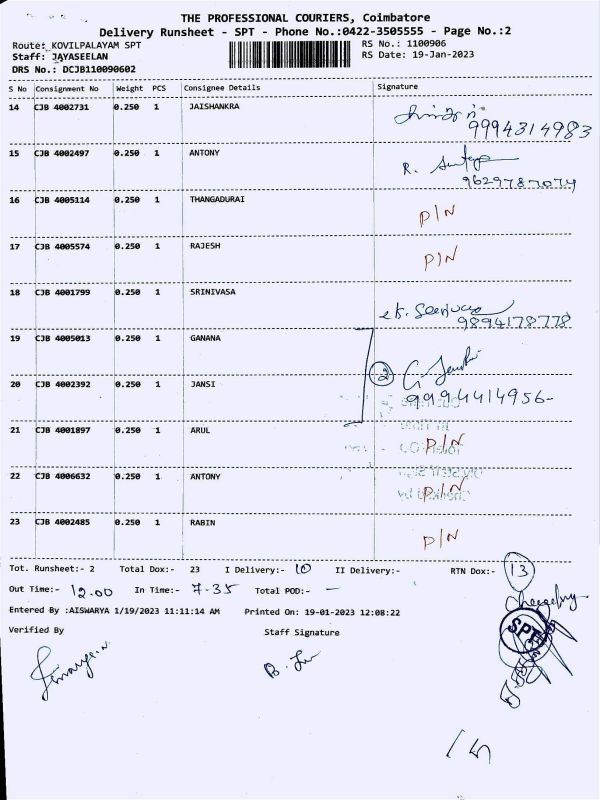 THE PROFESSIONAL COURIERS, Coimbatore
Delivery Runsheet - SPT - Phone No.:0422-3505555 - Page No.:2
Route: KOVILPALAYAM SPT
RS No.: 1100906
Staff: JAYASEELAN
RS Date: 19-Jan-2023
DRS No.: DCJB110090602
S No Consignment No Weight PCS Consignee Details Signature
14 CJB 4002731 0.250 1 JAISHANKRA
9994314983
15 CJB 4002497 0.250 1 ANTONY
R.
9629787074
16 CJB 4005114 0.250 1 THANGADURAI P/N
17 CJB 4005574 0.250 1 RAJESH P/N
18 CJB 4001799 0.250 1 SRINIVASA
9894178778
19 CJB 4005013 0.250 1 GANANA
2
20 CJB 4002392 0.250 1 JANSI
9994414956-
21 CJB 4001897 0.250 1 ARUL P/N
22 CJB 4006632 0.250 1 ANTONY P/N
23 CJB 4002485 0.250 1 RABIN P/N
Tot. Runsheet:- 2 Total Dox:- 23 I Delivery:- 10 II Delivery:- RTN Dox:- 13
Out Time:- 12.00 In Time:- 7-35 Total POD:- -
Entered By :AISWARYA 1/19/2023 11:11:14 AM Printed On: 19-01-2023 12:08:22
Verified By Staff Signature
SPT